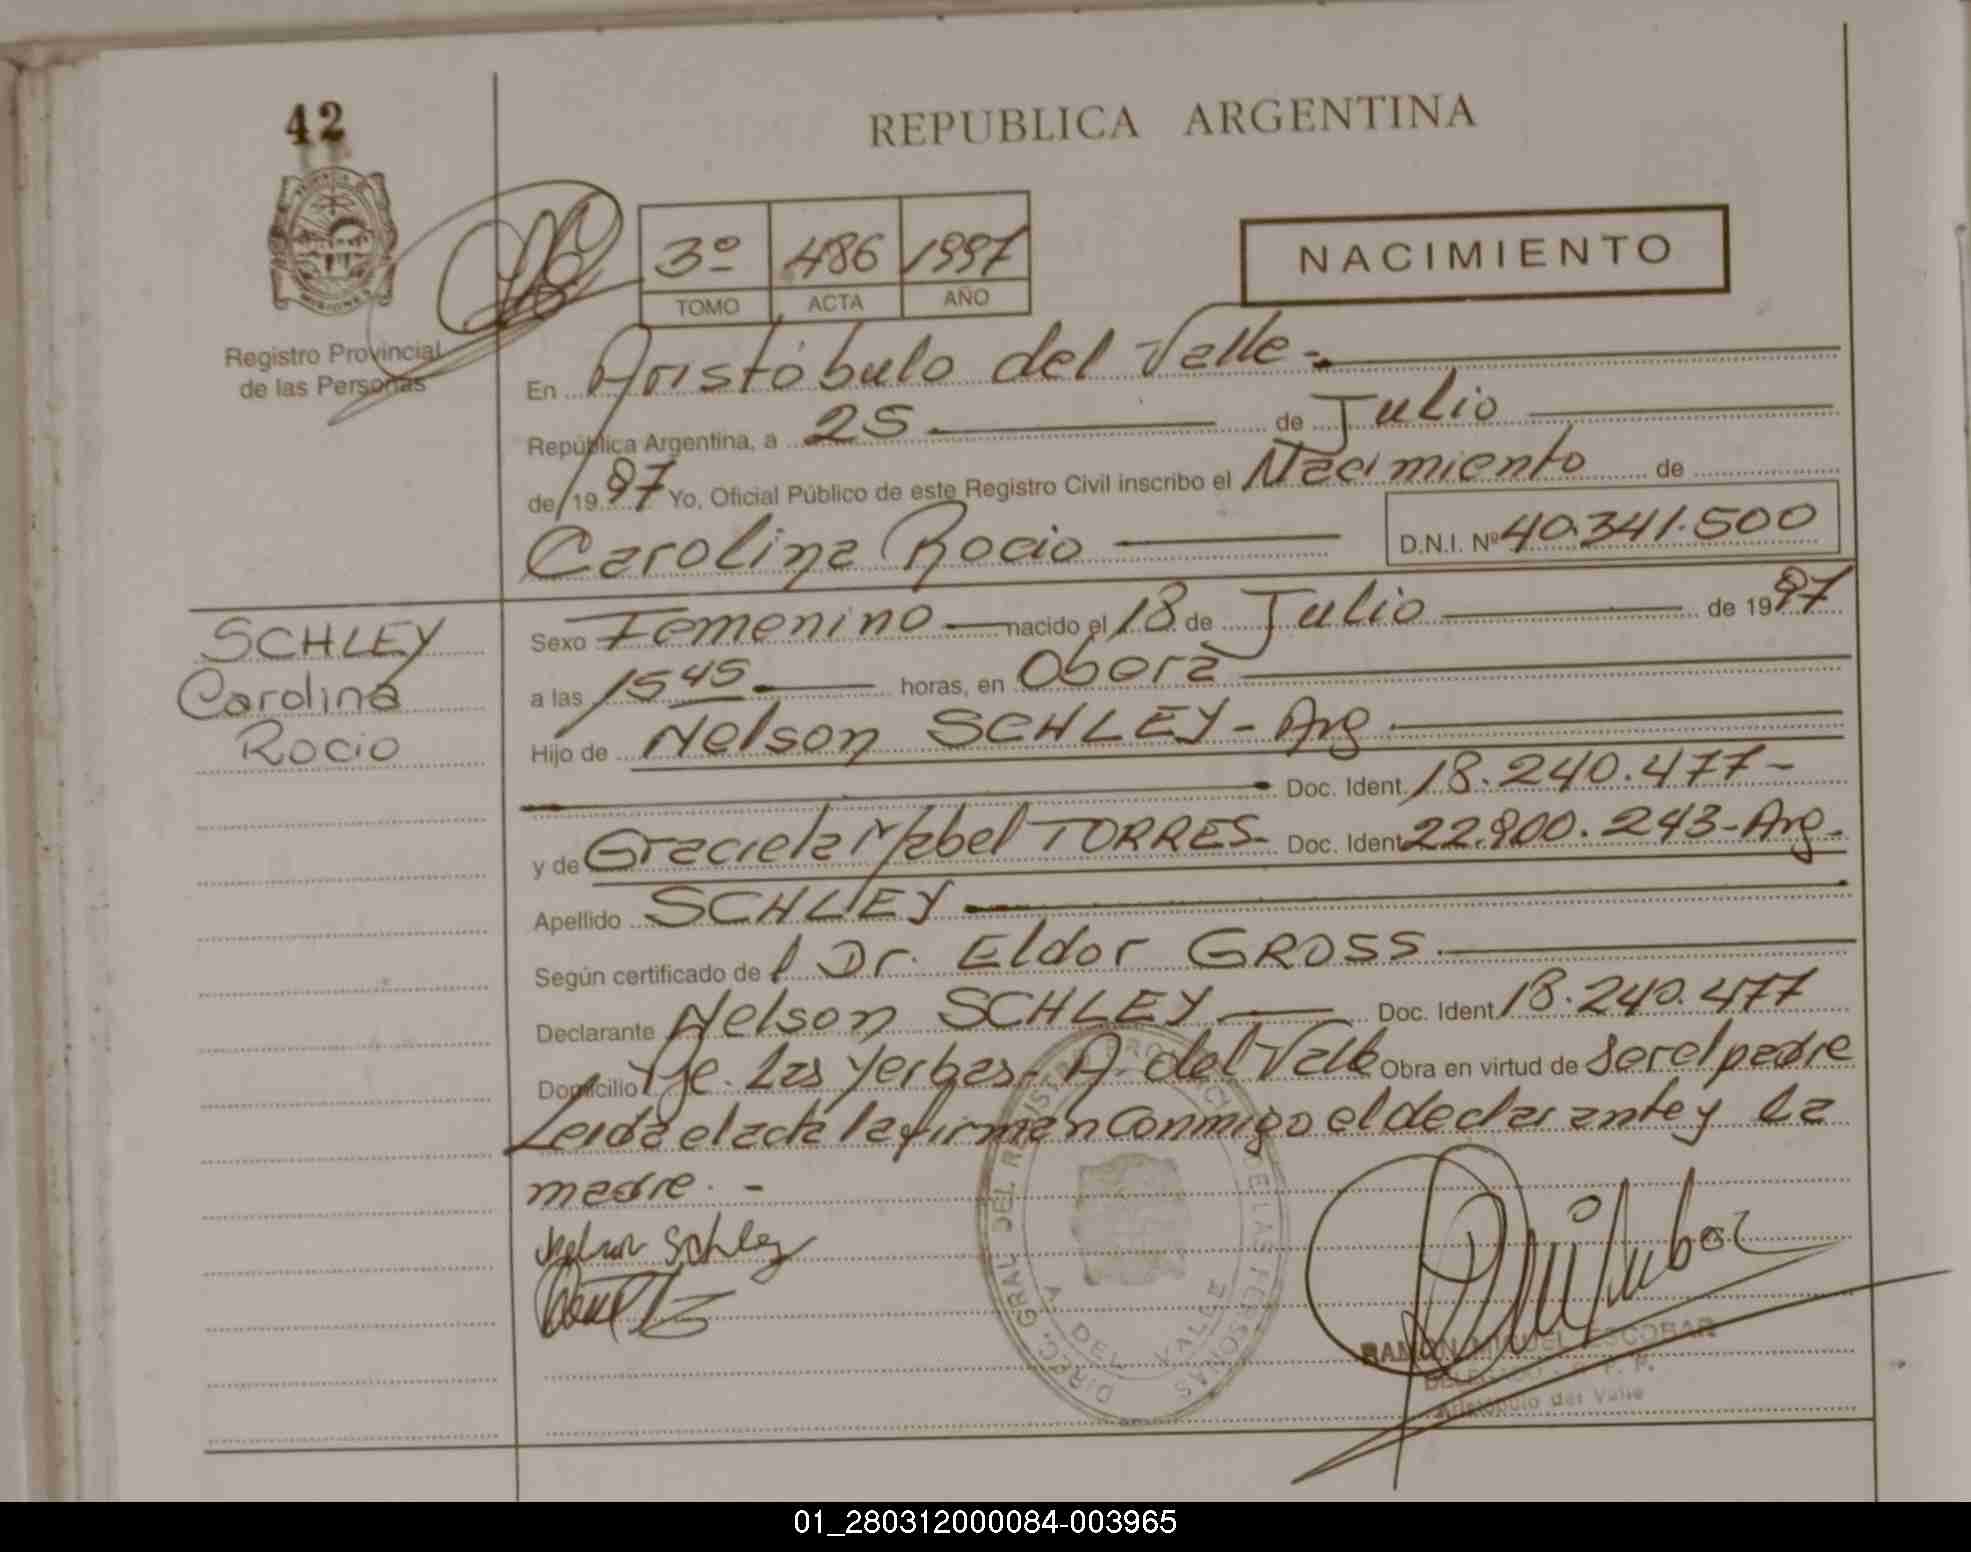 42
REPUBLICA ARGENTINA
3º 486 1997
TOMO ACTA AÑO
NACIMIENTO
Registro Provincial
de las Personas
En Aristóbulo del Valle -
República Argentina, a 25 de Julio
de 1997 Yo, Oficial Público de este Registro Civil inscribo el Nacimiento de
Carolina Rocio D.N.I. Nº 40.341.500
SCHLEY
Carolina
Rocio
Sexo Femenino nacido el 18 de Julio de 1997
a las 15 45 horas, en Oberá
Hijo de Nelson SCHLEY - Arg
Doc. Ident. 18.240.477-
y de Graciela Mabel TORRES- Doc. Ident 22.900.243-Arg-
Apellido SCHLEY
Según certificado de l Dr. Eldor GROSS
Declarante Nelson SCHLEY Doc. Ident 18.240.477
Domicilio Pje. Las Yerbas - A. del Valle Obra en virtud de ser el padre
Leida el acta la firman conmigo el declarante y la
madre. -
Nelson Schley
DIREC. GRAL DEL REGISTRO PROVINCIAL DE LAS PERSONAS
A DEL VALLE
RAMON MIGUEL ESCOBAR
Aristóbulo del Valle
01_280312000084-003965